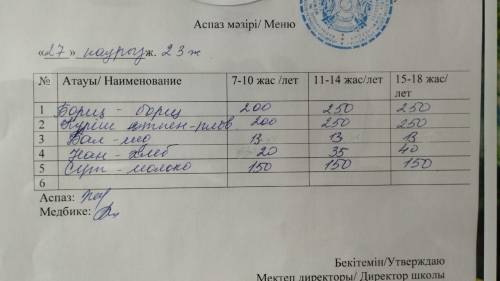 Аспаз мәзірі/ Меню
«27» наурыз ж. 23 ж
№ Атауы/ Наименование 7-10 жас /лет 11-14 жас/лет 15-18 жас/лет
1 Борщ - борщ 200 250 250
2 Күріш етпен - плов 200 250 250
3 Бал - мед 13 13 13
4 Нан - хлеб 20 35 40
5 Сүт - молоко 150 150 150
6
Аспаз:
Медбике:
Бекітемін/Утверждаю
Мектеп директоры/ Директор школы